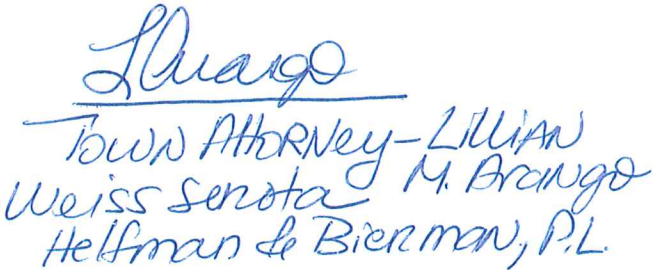 LArango
Town Attorney - Lillian
M. Arango
Weiss Serota
Helfman & Bierman, P.L.